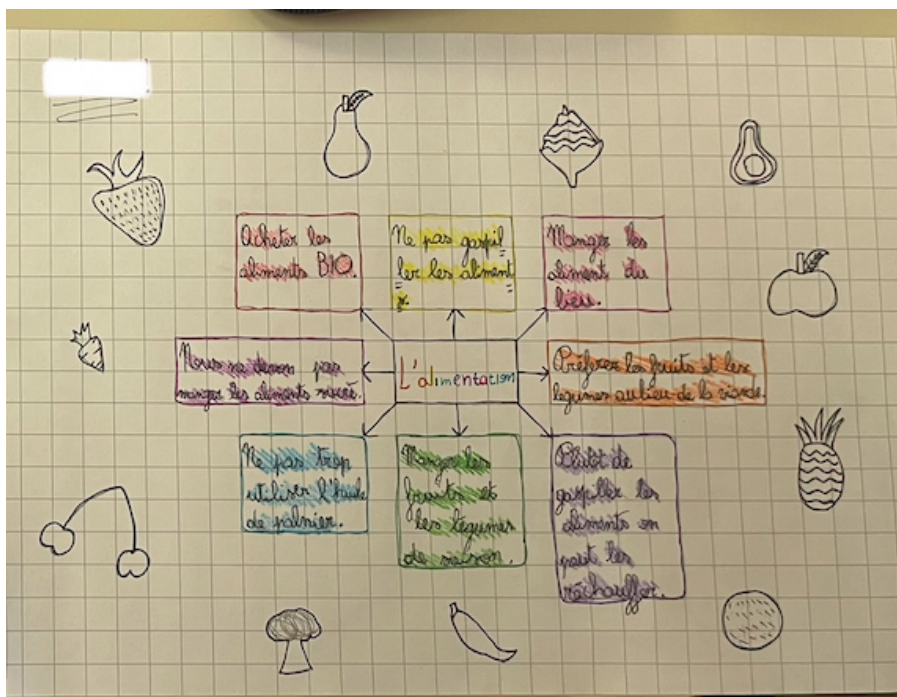 Acheter les
aliments BIO.
Ne pas gaspil
ler les aliment
s.
Manger les
aliment du
lieu.
Nous ne devon pas
manger les aliments sucré.
L'alimentation
Préferer les fruits et les
légumes au lieu de la viande.
Ne pas trop
utiliser l'huile
de palmier.
Manger les
fruits et
les légumes
de saison.
Plutôt de
gaspiller les
aliments on
peut les
réchauffer.